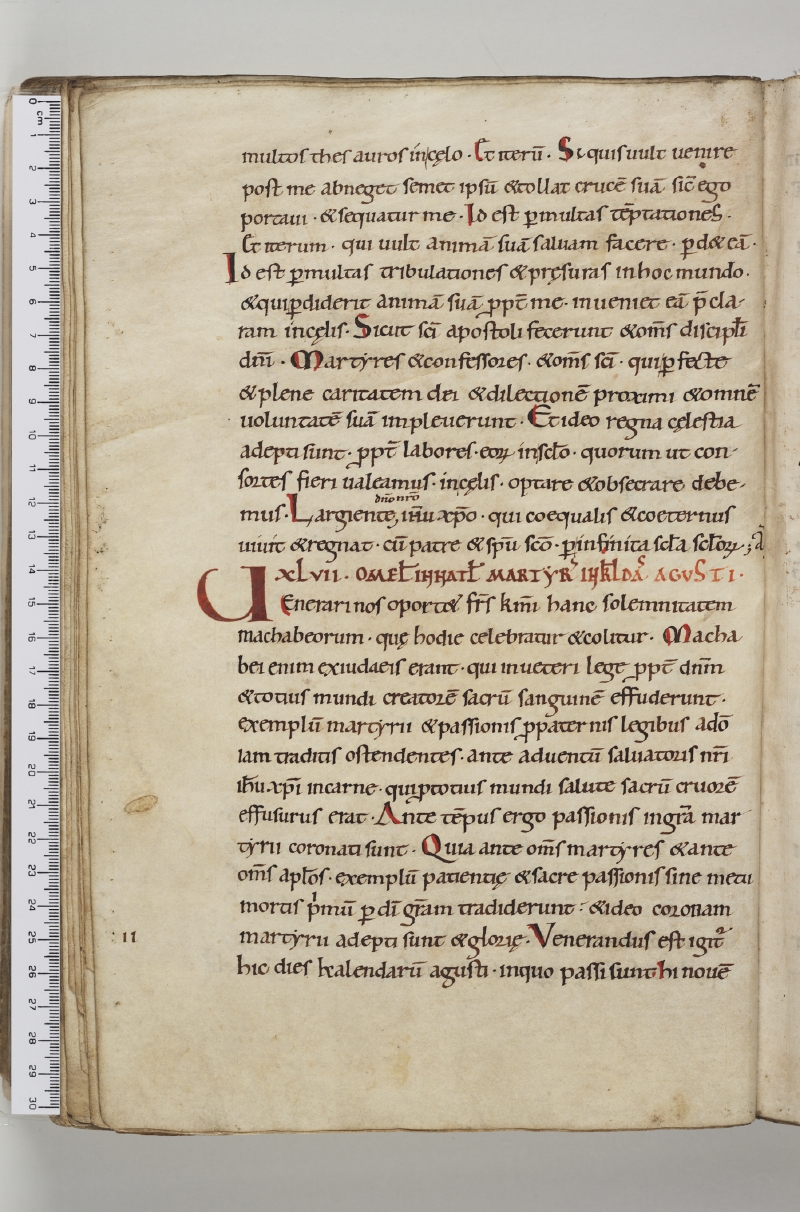 multos thesauros in cęlo · Et iterū · Si quis uult uenire
post me abneget semet ipsū &tollat crucē suā sic̄ ego
portaui · &sequatur me · Id est ꝑmultas tēptationes ·
Et iterum · qui uult animā suā saluam facere · ꝑd& eā ·
Id est ꝑmultas tribulationes &pręsuras in hoc mundo ·
&qui ꝑdiderit animā suā ꝓpt̄ me · inueniet eā p̄cla-
ram in cęlis · Sicut sc̄i apostoli fecerunt &om̄s discipłi
dn̄i · Martyres &confessores · &om̄s sc̄i · qui ꝑfecte
&plene caritatem dei &dilectionē proximi &omnē
uoluntatē suā impleuerunt · Et ideo regna cęlestia
adepti sunt · ꝓpt̄ labores · eoꝝ in sc̄lo · quorum ut con-
sortes fieri ualeamus · in cęlis · optare &obsecrare debe-
dn̄o nr̄o
mus · Largiente, ih̄u xp̄o · qui coequalis &coeternus
uiuit &regnat · cū patre &sp̄u sc̄o · ꝑ infinita sc̄la sc̄loꝝ ; A
XLVII · OMEŁ IN NAT̄ MARTYR̄ IN KŁ DÆ AGVSTI ·
Uenerari nos oport& fr̄s km̄i hanc solemnitatem
machabeorum · quę hodie celebratur &colitur · Macha
bei enim ex iudaeis erant · qui in ueteri lege ꝓpt̄ dn̄m
&totius mundi creatorē sacrū sanguinē effuderunt ·
exemplū martyrii &passionis ꝓ paternis legibus adō
iam traditis ostendentes · ante aduentū saluatoris nr̄i
ih̄u xp̄i in carne · qui ꝓ totius mundi salute sacrū cruorē
effusurus erat · Ante tēpus ergo passionis in gr̄a mar
tyrii coronati sunt · Quia ante om̄s martyres &ante
om̄s apłos · exemplū patientię &sacre passionis sine metu
mortis p̄mū ꝑ dī gr̄am tradiderunt · &ideo coronam
: II
martyrii adepti sunt &glorię · Venerandus est igit̄
hic dies kalendarū agusti · in quo passi sunt hi nouē